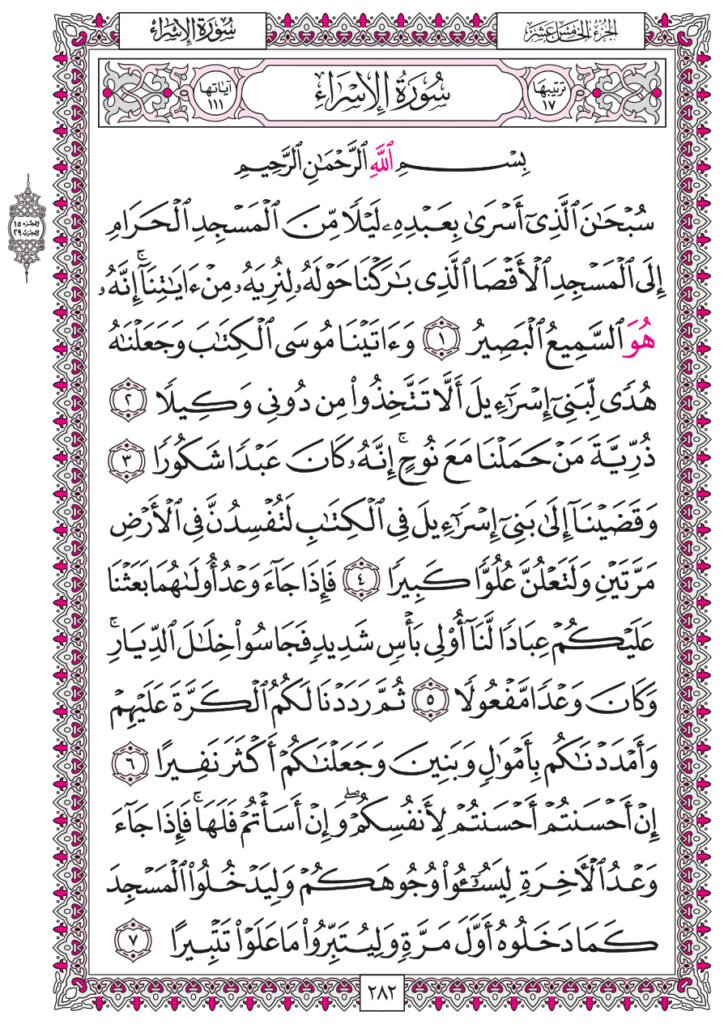 سُورَةُ الإِسْرَاءِ
الجُزْءُ الخَامِسَ عَشَرَ
ترتيبها ١٧
سُورَةُ الإِسْرَاءِ
آياتها ١١١
بِسْمِ اللَّهِ الرَّحْمَٰنِ الرَّحِيمِ
الجزء ١٥
الحزب ٢٩
سُبْحَٰنَ ٱلَّذِىٓ أَسْرَىٰ بِعَبْدِهِۦ لَيْلًا مِّنَ ٱلْمَسْجِدِ ٱلْحَرَامِ
إِلَى ٱلْمَسْجِدِ ٱلْأَقْصَا ٱلَّذِى بَٰرَكْنَا حَوْلَهُۥ لِنُرِيَهُۥ مِنْ ءَايَٰتِنَآ ۚ إِنَّهُۥ
هُوَ ٱلسَّمِيعُ ٱلْبَصِيرُ ١ وَءَاتَيْنَا مُوسَى ٱلْكِتَٰبَ وَجَعَلْنَٰهُ
هُدًى لِّبَنِىٓ إِسْرَٰٓءِيلَ أَلَّا تَتَّخِذُوا۟ مِن دُونِى وَكِيلًا ٢
ذُرِّيَّةَ مَنْ حَمَلْنَا مَعَ نُوحٍ ۚ إِنَّهُۥ كَانَ عَبْدًا شَكُورًا ٣
وَقَضَيْنَآ إِلَىٰ بَنِىٓ إِسْرَٰٓءِيلَ فِى ٱلْكِتَٰبِ لَتُفْسِدُنَّ فِى ٱلْأَرْضِ
مَرَّتَيْنِ وَلَتَعْلُنَّ عُلُوًّا كَبِيرًا ٤ فَإِذَا جَآءَ وَعْدُ أُولَىٰهُمَا بَعَثْنَا
عَلَيْكُمْ عِبَادًا لَّنَآ أُو۟لِى بَأْسٍ شَدِيدٍ فَجَاسُوا۟ خِلَٰلَ ٱلدِّيَارِ ۚ
وَكَانَ وَعْدًا مَّفْعُولًا ٥ ثُمَّ رَدَدْنَا لَكُمُ ٱلْكَرَّةَ عَلَيْهِمْ
وَأَمْدَدْنَٰكُم بِأَمْوَٰلٍ وَبَنِينَ وَجَعَلْنَٰكُمْ أَكْثَرَ نَفِيرًا ٦
إِنْ أَحْسَنتُمْ أَحْسَنتُمْ لِأَنفُسِكُمْ ۖ وَإِنْ أَسَأْتُمْ فَلَهَا ۚ فَإِذَا جَآءَ
وَعْدُ ٱلْءَاخِرَةِ لِيَسُۥٓـُٔوا۟ وُجُوهَكُمْ وَلِيَدْخُلُوا۟ ٱلْمَسْجِدَ
كَمَا دَخَلُوهُ أَوَّلَ مَرَّةٍ وَلِيُتَبِّرُوا۟ مَا عَلَوْا۟ تَتْبِيرًا ٧
٢٨٢